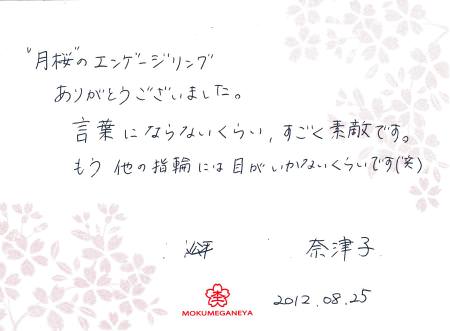 "月桜"のエンゲージリング
ありがとうございました。
言葉にならないくらい、すごく素敵です。
もう他の指輪には目がいかないくらいです(笑)
奈津子
MOKUMEGANEYA
2012.08.25